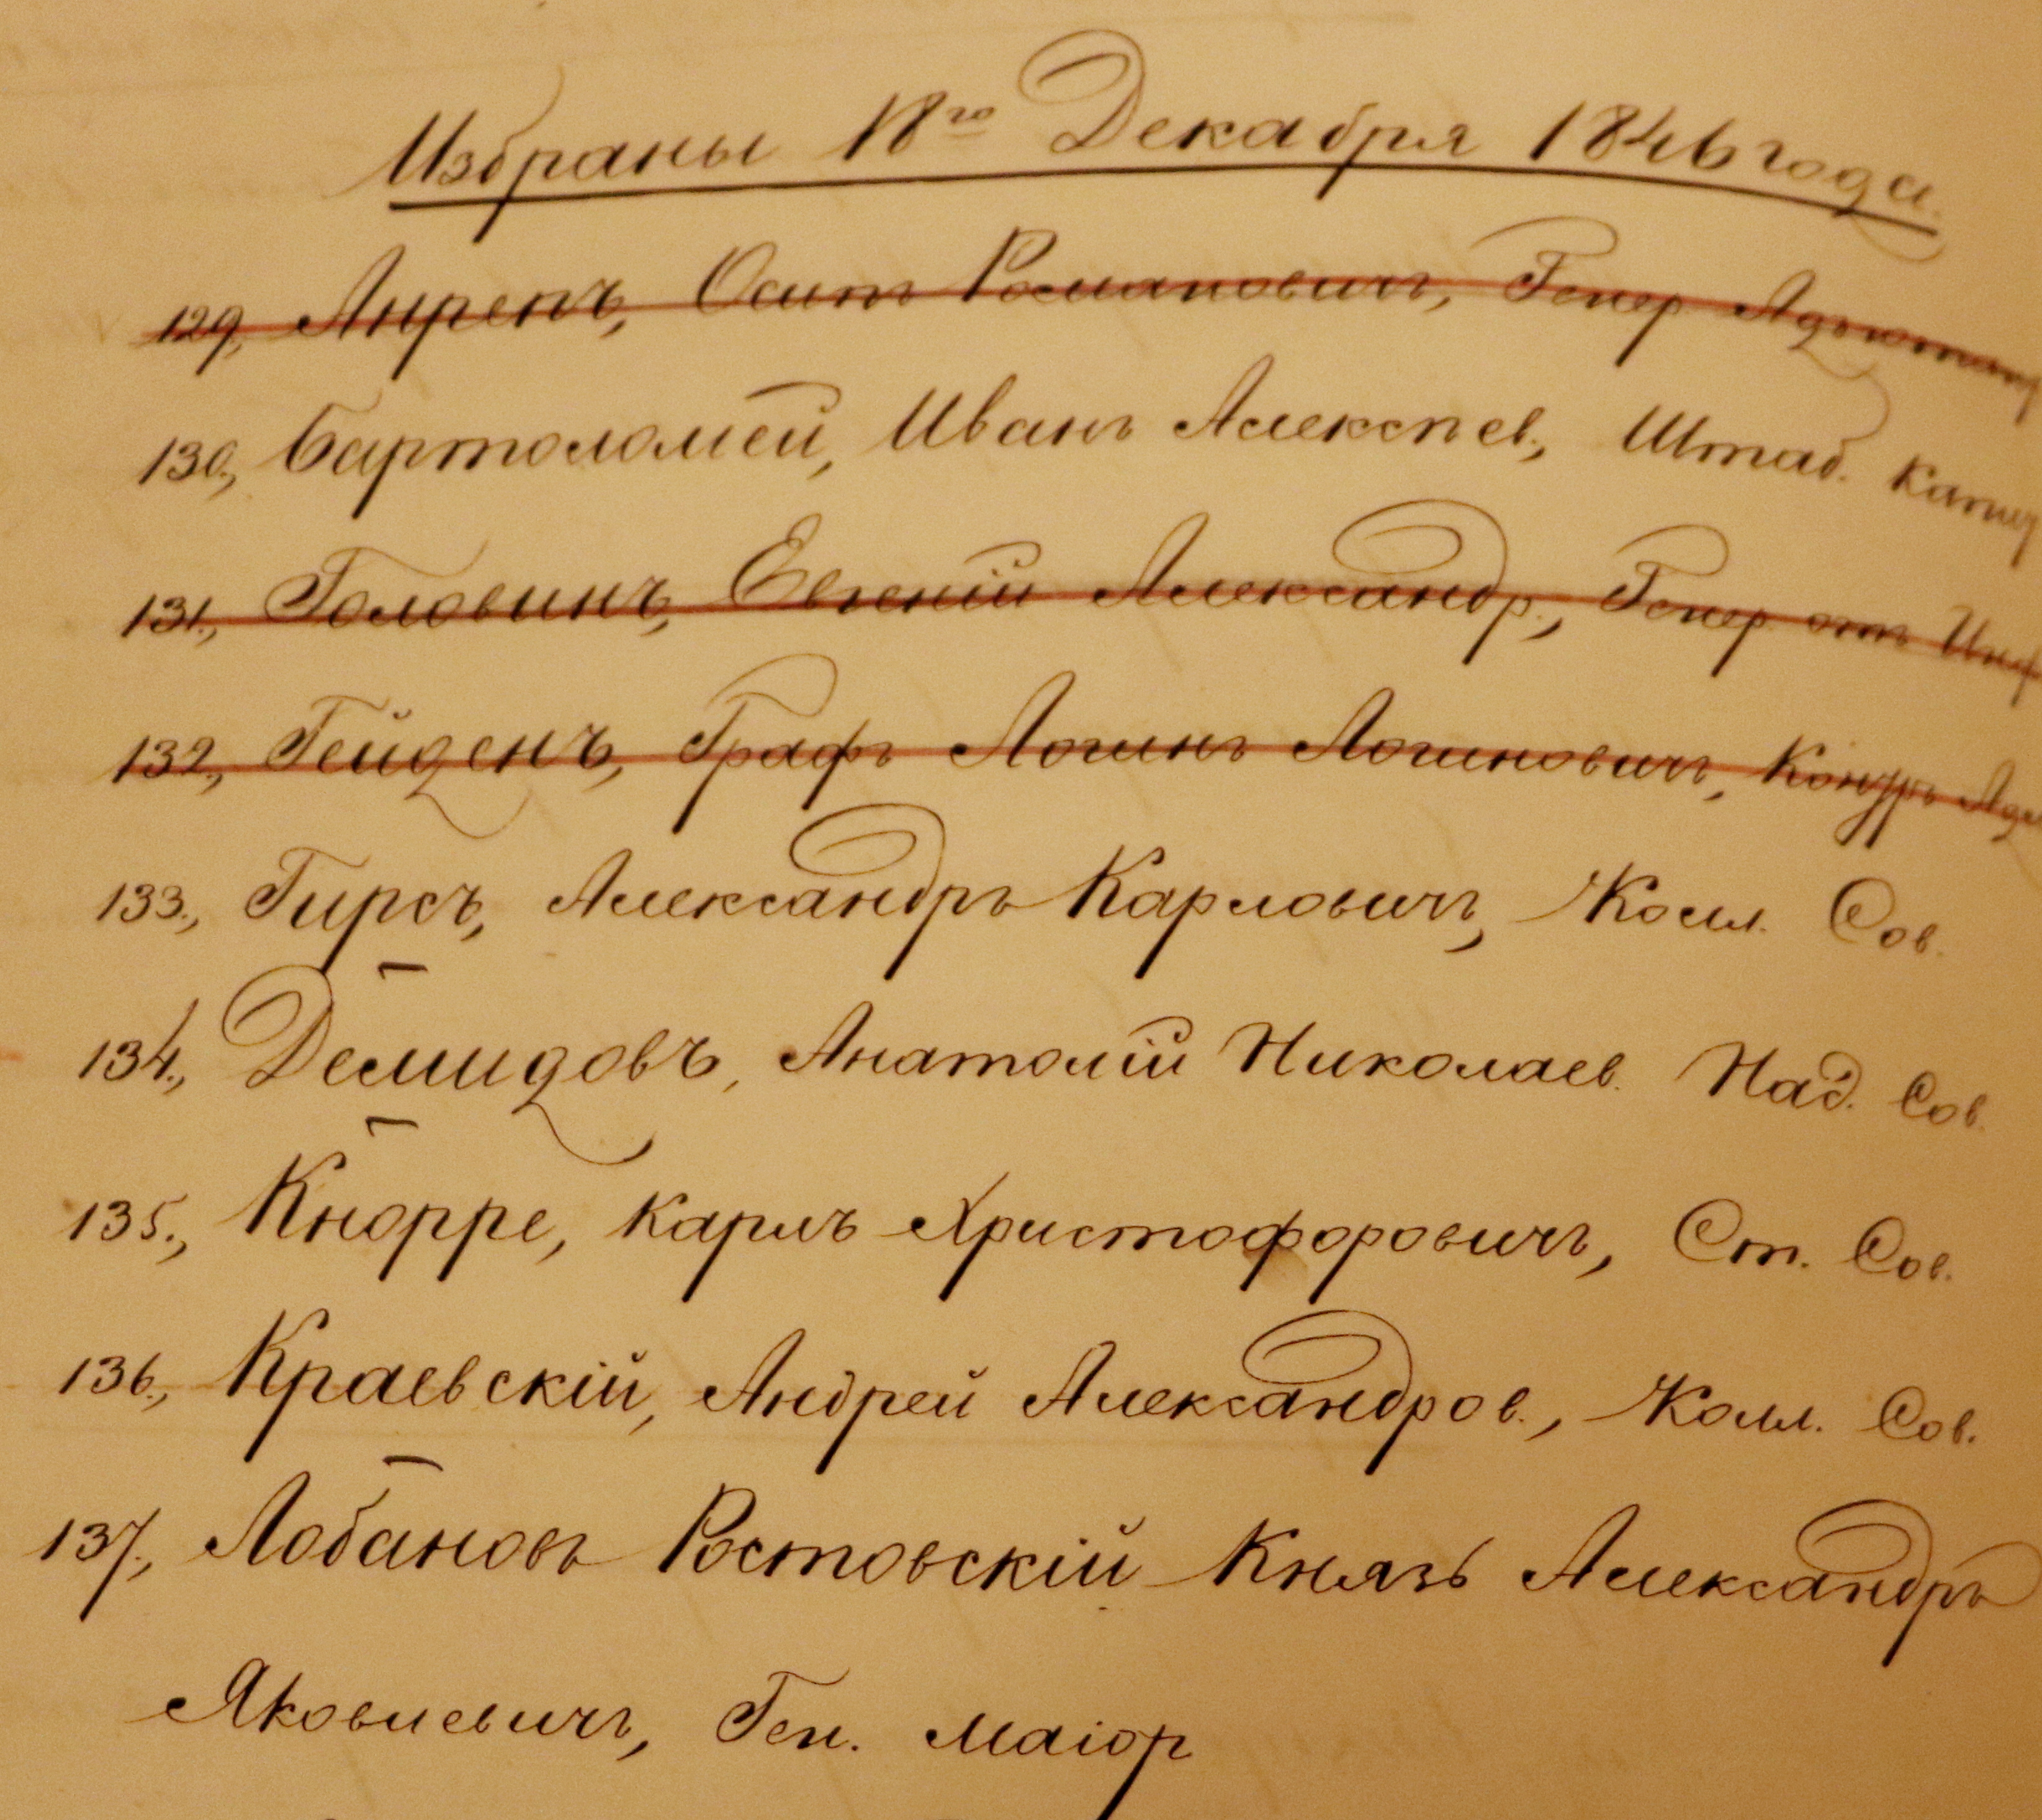 Избраны 18го Декабря 1846 года.
129., Анрепъ, Осипъ Романовичъ, Генер Адъютант
130., Бартоломей, Иванъ Алексѣев., Штаб. Капит
131., Головинъ, Евгеній Александр., Генер. отъ Инф
132., Гейденъ, Графъ Логинъ Логиновичъ, Контръ Адм
133., Гирсъ, Александръ Карловичъ, Колл. Сов.
134., Демидовъ, Анатолій Николаев. Над. Сов.
135., Кнорре, Карлъ Христофоровичъ, Ст. Сов.
136., Краевскій, Андрей Александров., Колл. Сов.
137., Лобановъ Ростовскій Князь Александръ
Яковлевичъ, Ген. Маіор